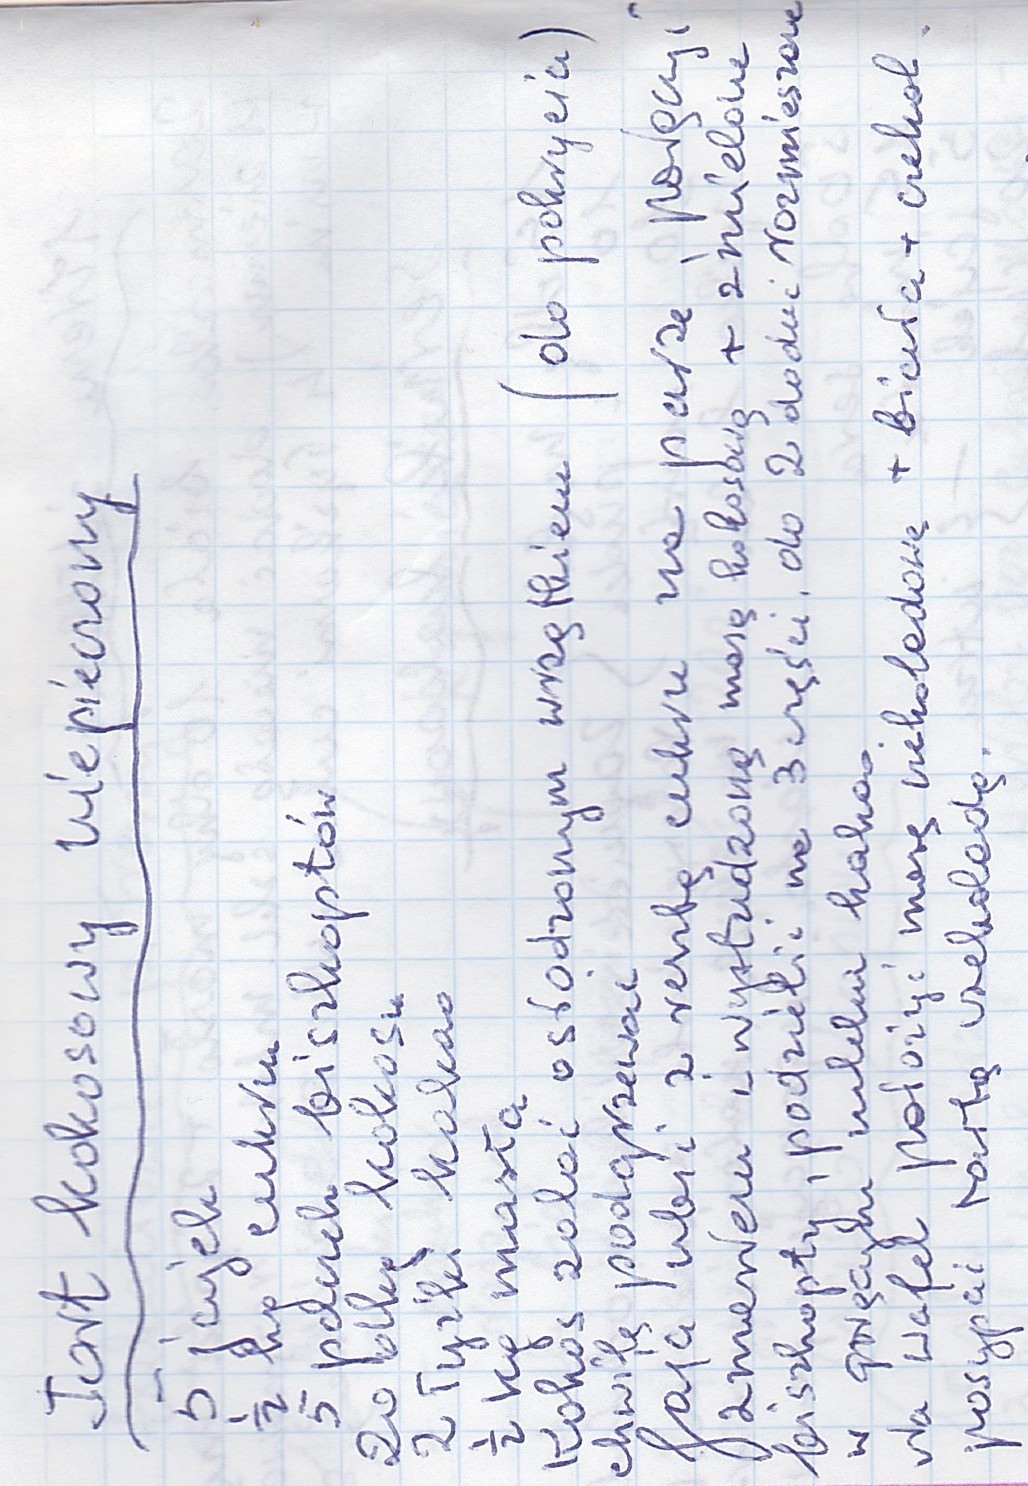 Tort kokosowy niepieczony
5 jajek
½ kg cukru
5 paczek biszkoptów
20 dkg kokosu
2 łyżki kakao
½ kg masła
Kokos zalać osłodzonym wrzątkiem (do pokrycia)
chwilę podgrzewać
Jaja ubić z resztą cukru na parze, połączyć
z masłem i wystudzoną masą kokosową + zmielone
biszkopty, podzielić na 3 części. do 2 dodać rozmieszane
w gorącym mleku kakao.
Na wafel położyć masę czekoladową + biała + czekol.
posypać tartą czekoladą.